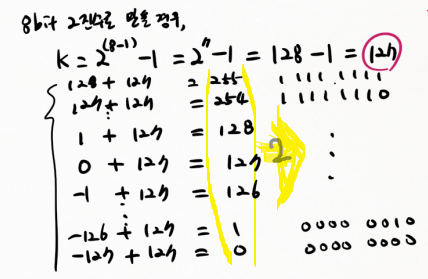 8bit 2진수로 만들 경우,
K = 2^(8-1) - 1 = 2^7 - 1 = 128 - 1 = 127
128 + 127 = 255 1 1 1 1 1 1 1 1
127 + 127 = 254 1 1 1 1 1 1 1 0
⋮
1 + 127 = 128
0 + 127 = 127 2
-1 + 127 = 126
⋮
-126 + 127 = 1 0 0 0 0 0 0 1 0
-127 + 127 = 0 0 0 0 0 0 0 0 0